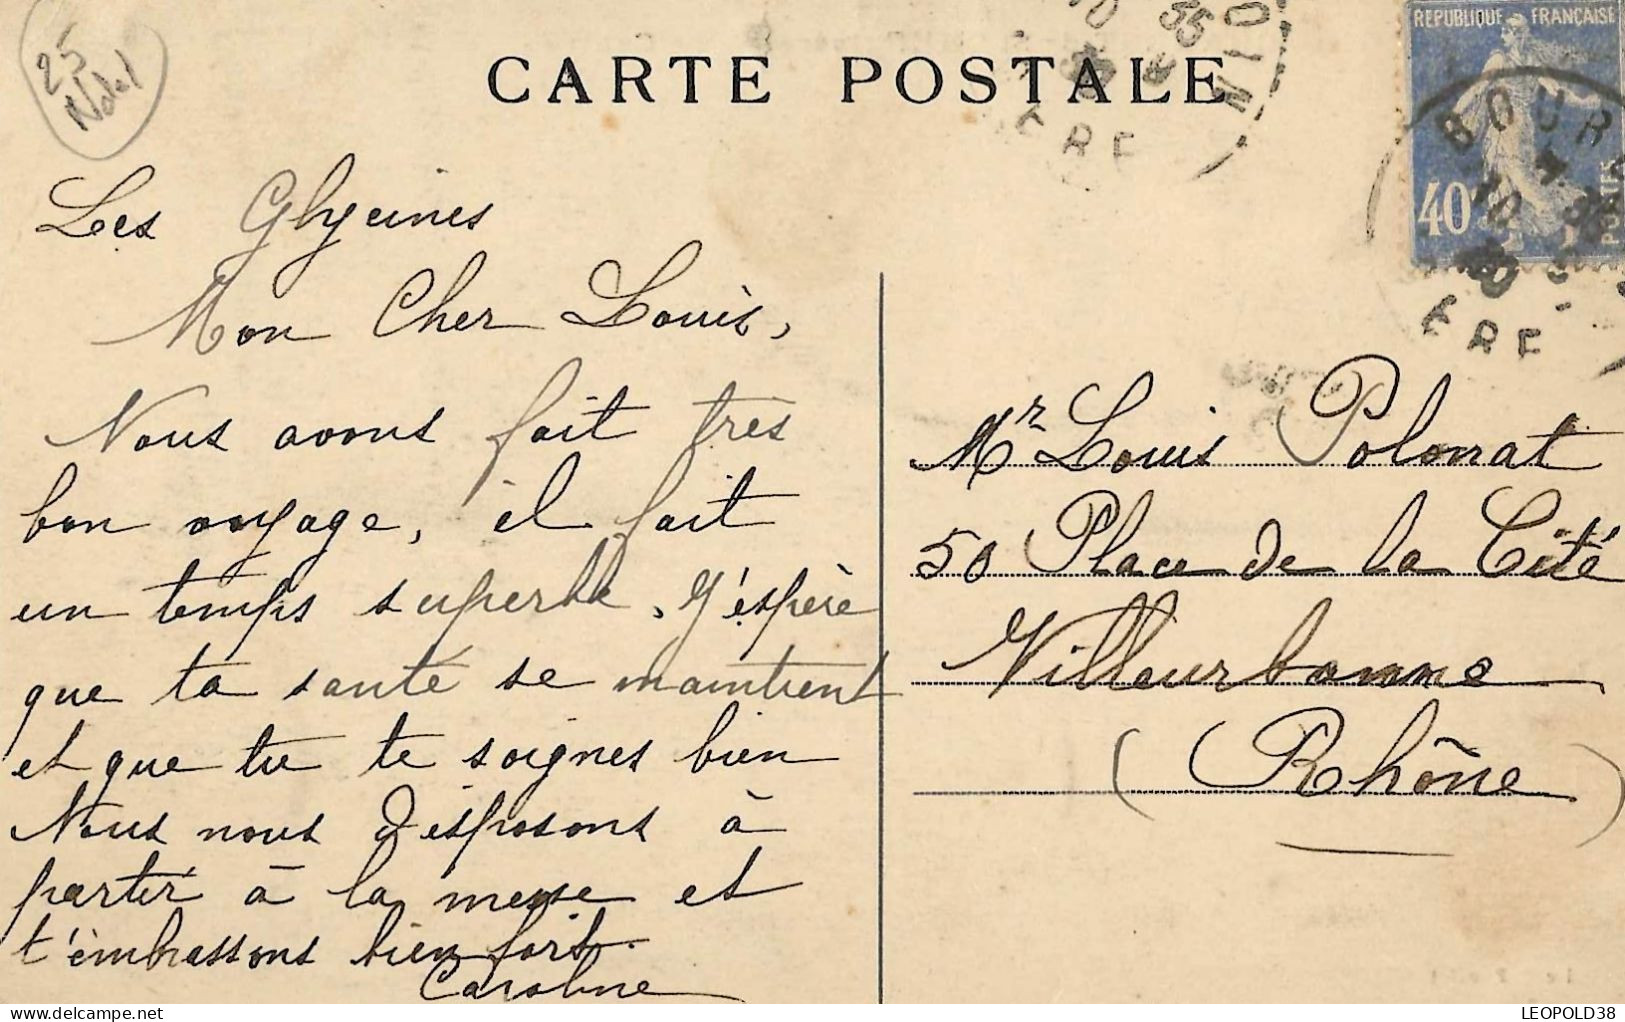 25
CARTE POSTALE
REPUBLIQUE FRANÇAISE
BOUR
40
POSTES
ERE
ERE
Les Glycines
Mon Cher Louis,
Nous avons fait très
bon voyage, il fait
un temps superbe. J'éspère
que ta santé se maintient
et que tu te soignes bien
Nous nous disposons à
partir à la messe et
t'émbrassons bien fort.
Caroline
Mr Louis Polonat
50 Place de la Cité
Villeurbanne
(Rhône)
delcampe.net
LEOPOLD38